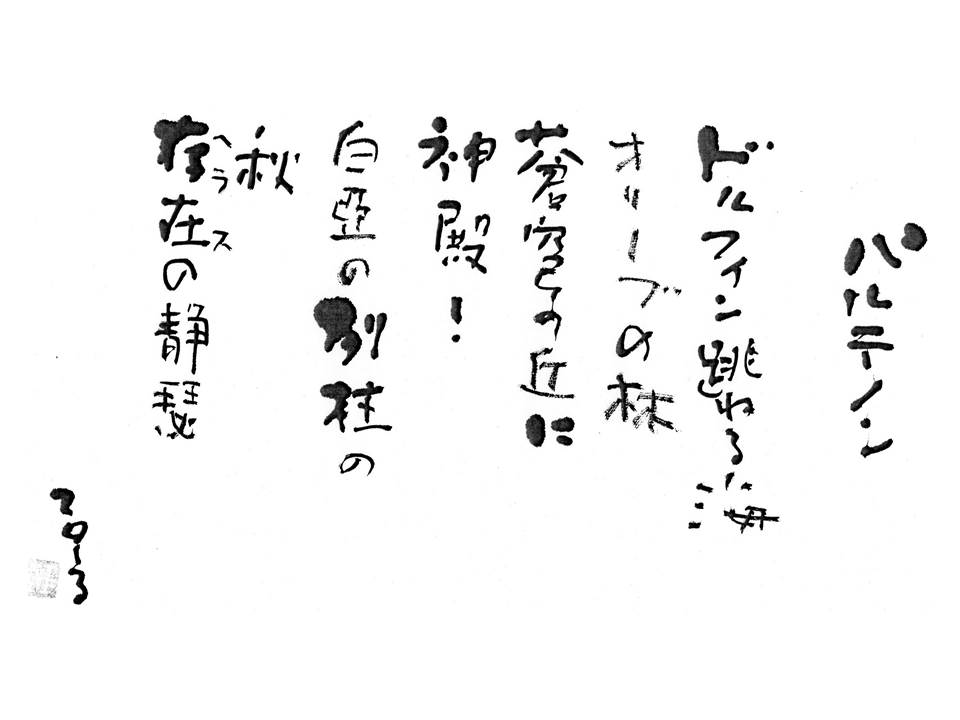 パルテノン
ドルフィン跳ねる海
オリーブの林
蒼穹の丘に
神殿!
白亜の列柱の
秋
存在の静謐
ヘラス